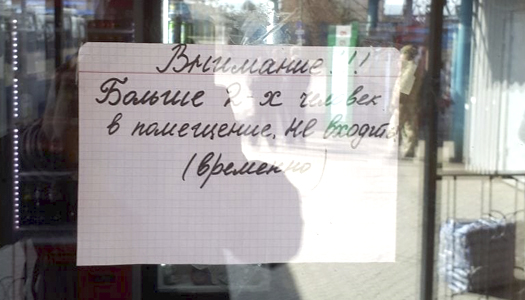 Внимание!!!
Больше 2-х человек
в помещение, не входить
(временно)